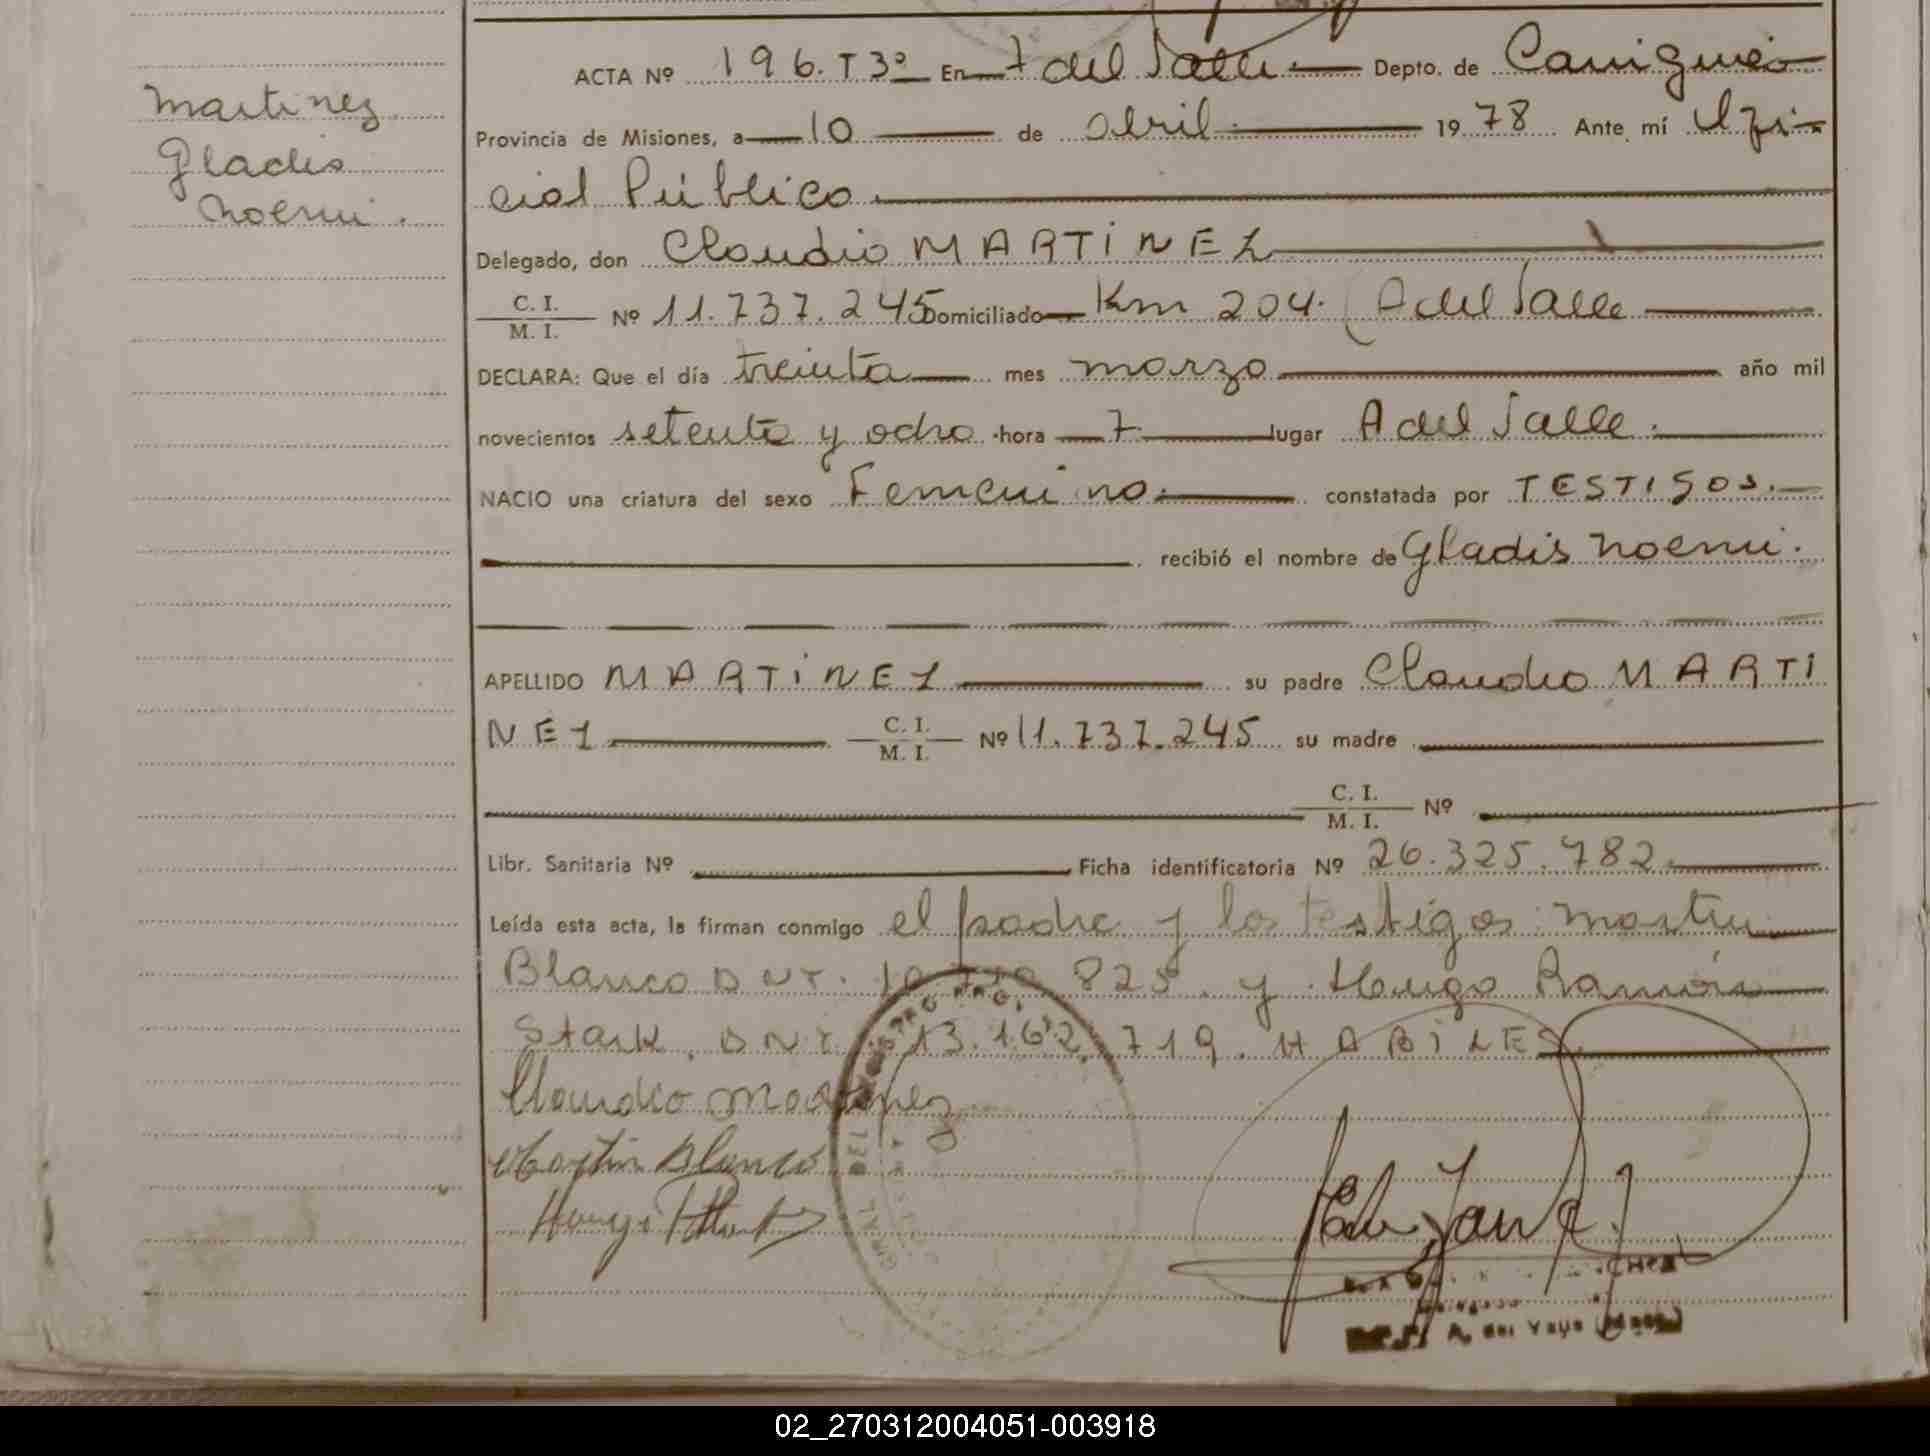 Martinez
Gladis
Noemi.
ACTA Nº 196. T 3º En 7 del Salle Depto. de Cainguás
Provincia de Misiones, a 10 de abril 1978 Ante mí Ofi-
cial Público
Delegado, don Claudio MARTINEZ
C. I.
M. I. Nº 11.737.245 Domiciliado Km 204. A del Salle
DECLARA: Que el día treinta mes marzo año mil
novecientos setenta y ocho hora 7 lugar A del Salle.
NACIO una criatura del sexo Femenino. constatada por TESTIGOS.
recibió el nombre de Gladis Noemi.
APELLIDO MARTINEZ su padre Claudio MARTI
NEZ C. I.
M. I. Nº 11.737.245 su madre
C. I.
M. I. Nº
Libr. Sanitaria Nº Ficha identificatoria Nº 26.325.782
Leída esta acta, la firman conmigo el padre y los testigos: Martin
Blanco DNI. 825. y Hugo Ramón
Stark. DNI. 13.162.719. HABILES
Claudio Martinez
Martin Blanco
Hugo
A. del Valle
02_270312004051-003918